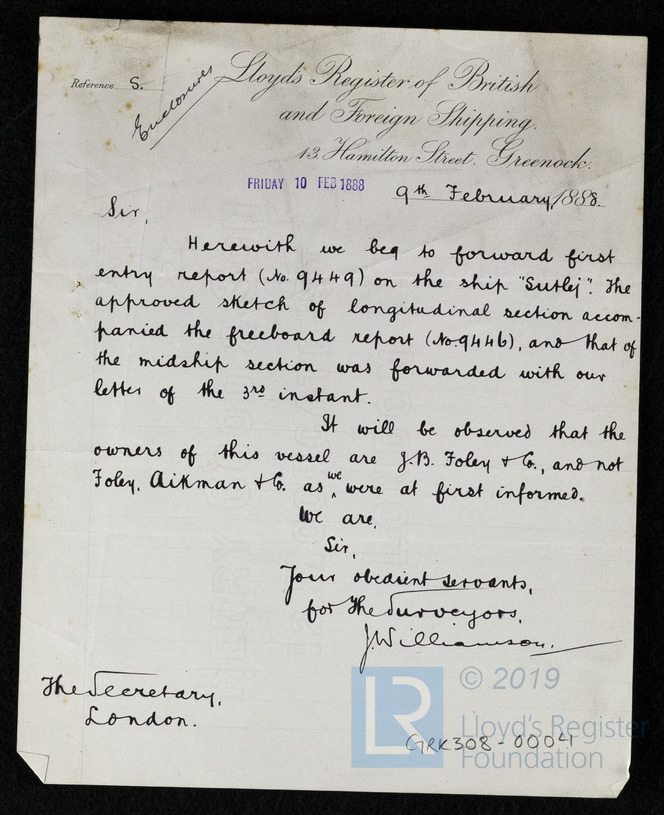 Lloyd's Register of British
Reference S.
Enclosures
and Foreign Shipping.
13, Hamilton Street. Greenock.
FRIDAY 10 FEB 1888
9th February, 1888.
Sir,
Herewith we beg to forward first
entry report (No. 9449) on the ship "Sutlej". The
approved sketch of longitudinal section accom-
panied the freeboard report (No 9446), and that of
the midship section was forwarded with our
letter of the 3rd instant.
It will be observed that the
owners of this vessel are J.B. Foley & Co., and not
Foley, Aikman & Co. as we were at first informed.
We are,
Sir,
Your obedient servants,
for The Surveyors,
J. Williamson.
The Secretary,
London.
LR
© 2019
Lloyd's Register
Foundation
GRK308-0004